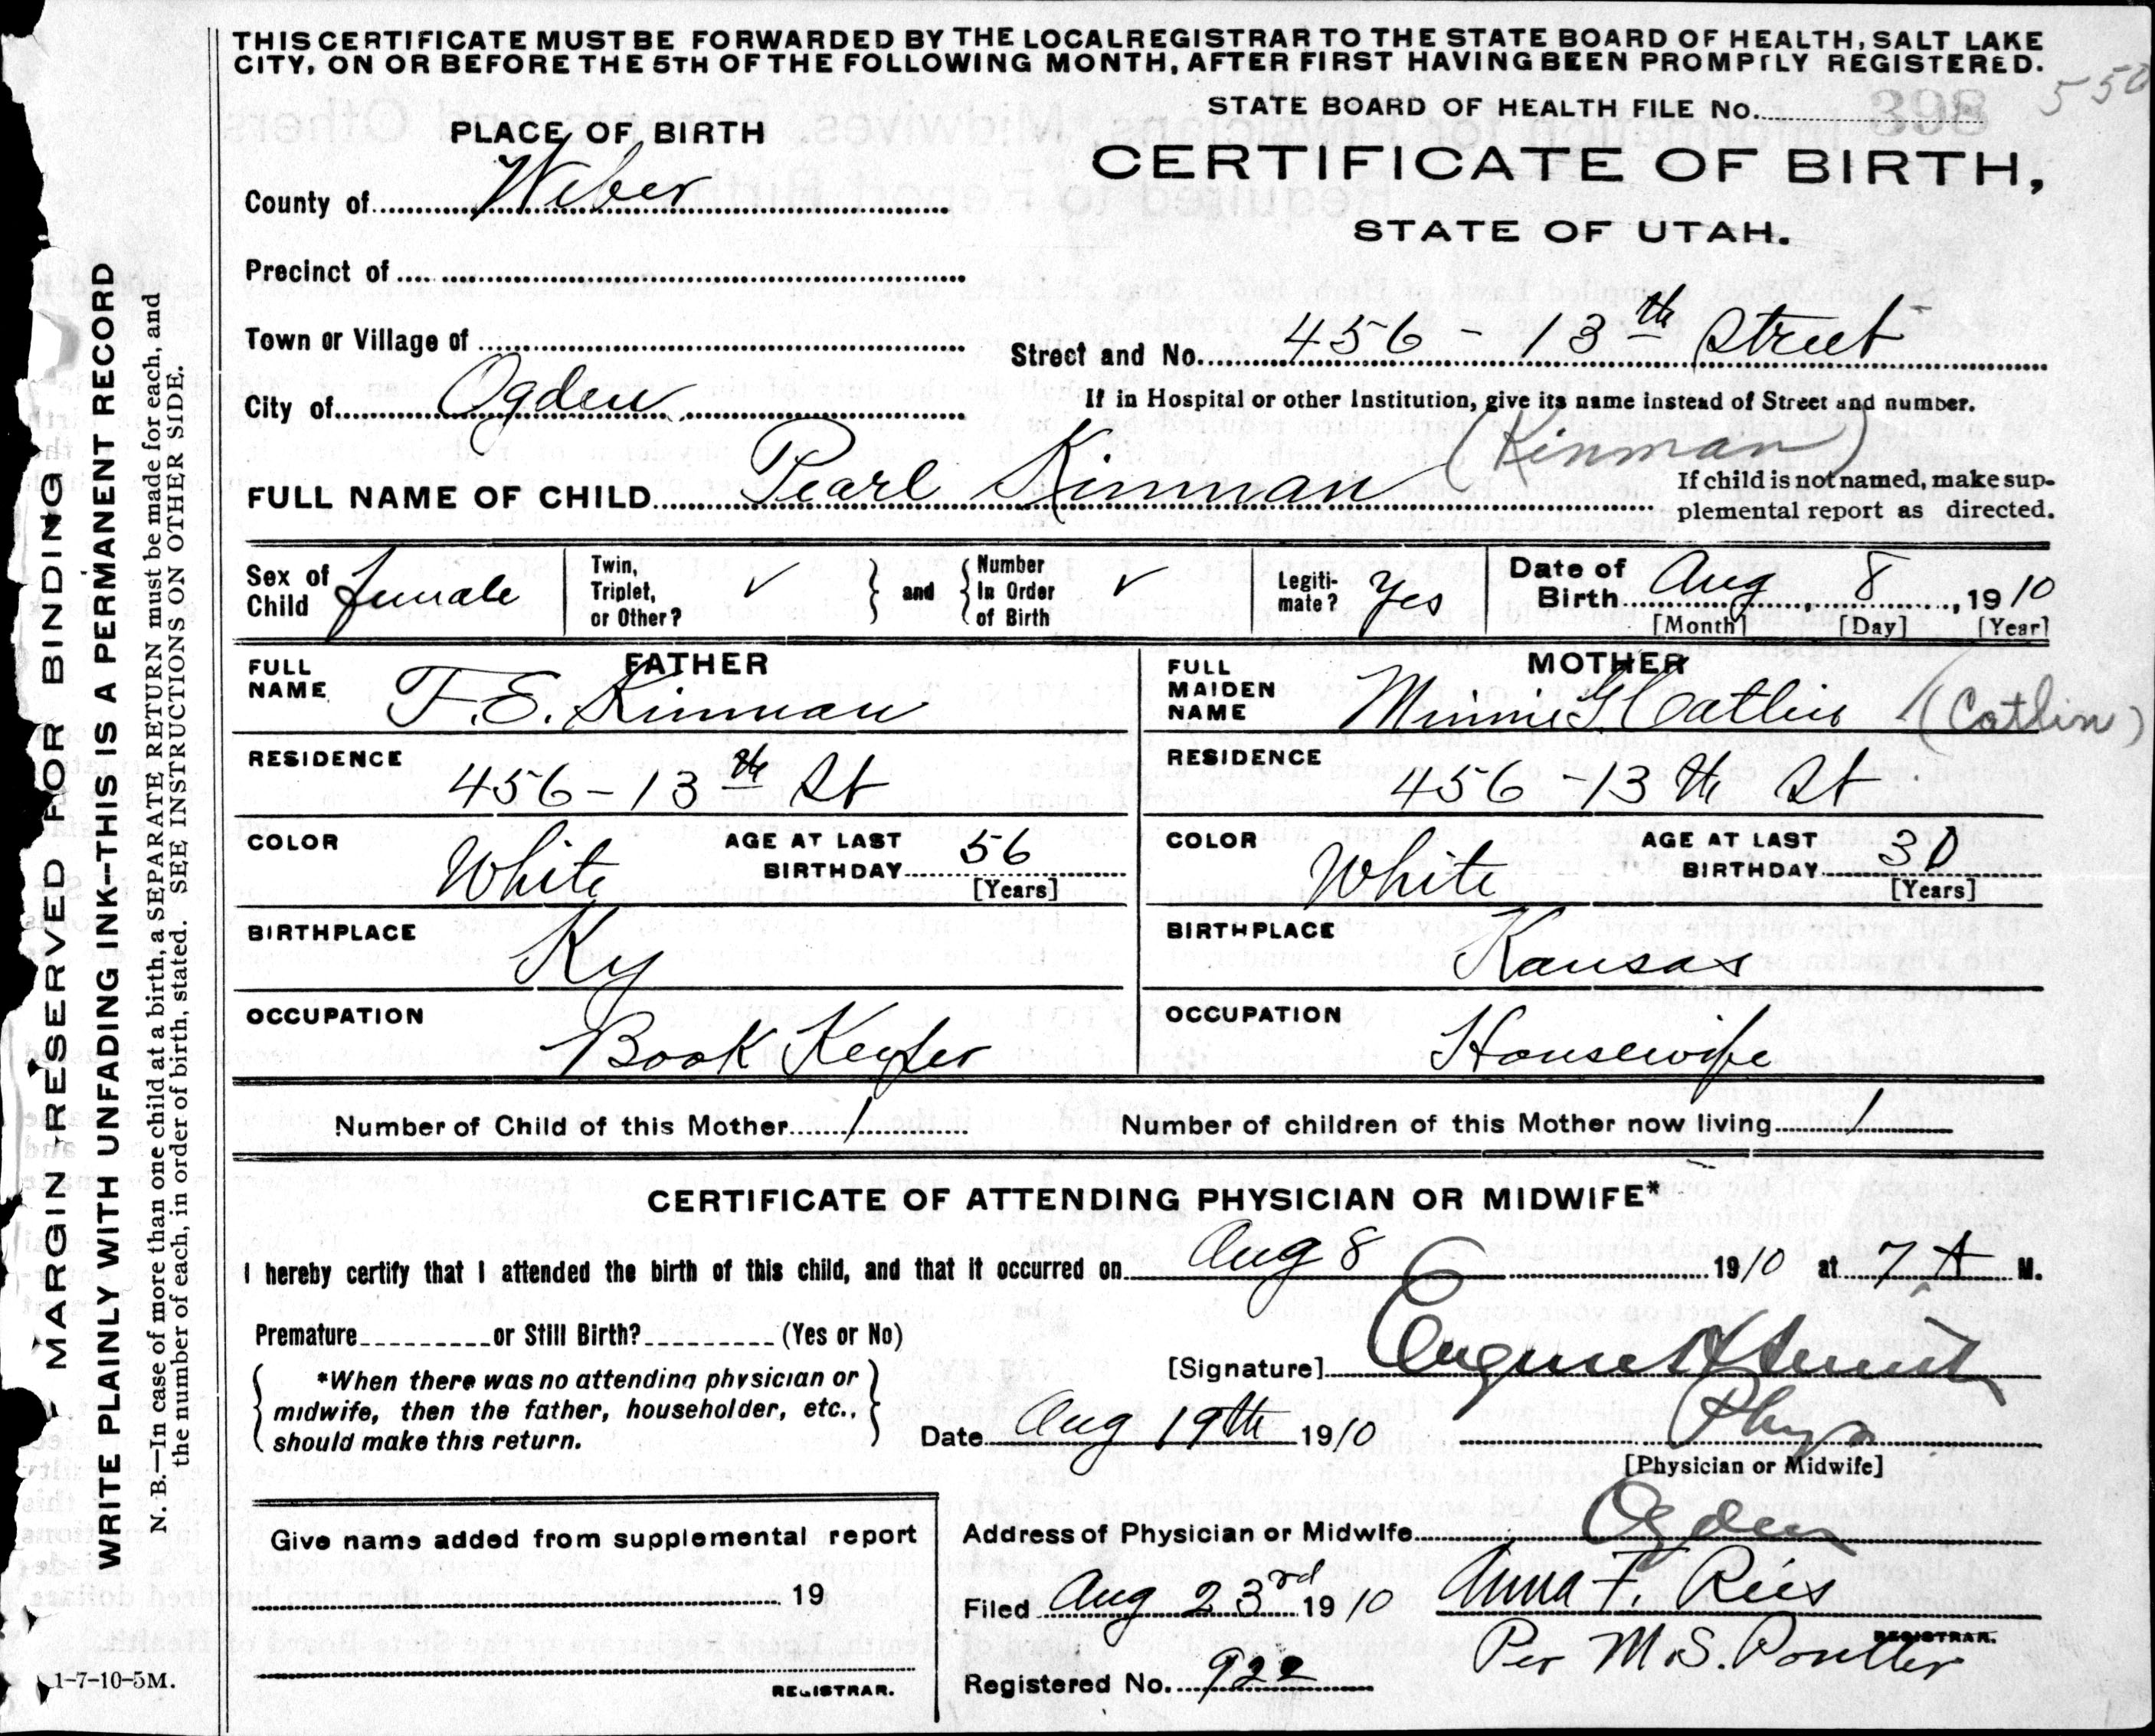 THIS CERTIFICATE MUST BE FORWARDED BY THE LOCAL REGISTRAR TO THE STATE BOARD OF HEALTH, SALT LAKE
CITY, ON OR BEFORE THE 5TH OF THE FOLLOWING MONTH, AFTER FIRST HAVING BEEN PROMPTLY REGISTERED.
550
STATE BOARD OF HEALTH FILE No. 398
PLACE OF BIRTH
CERTIFICATE OF BIRTH,
STATE OF UTAH.
County of Weber
Precinct of
Town or Village of
Street and No. 456 - 13th Street
City of Ogden
If in Hospital or other Institution, give its name instead of Street and number.
(Kinman)
FULL NAME OF CHILD Pearl Kinman
If child is not named, make sup-
plemental report as directed.
Sex of Child female
Twin, Triplet, or Other? ✓ } and { Number In Order of Birth ✓
Legiti-mate? Yes
Date of Birth Aug 8, 1910
[Month] [Day] [Year]
FATHER
FULL NAME F. E. Kinman
RESIDENCE 456 - 13th St
COLOR White AGE AT LAST BIRTHDAY 56 [Years]
BIRTHPLACE Ky
OCCUPATION Book Keeper
MOTHER
FULL MAIDEN NAME Minnie G Catlin (Catlin)
RESIDENCE 456 - 13th St
COLOR White AGE AT LAST BIRTHDAY 30 [Years]
BIRTHPLACE Kansas
OCCUPATION Housewife
Number of Child of this Mother 1 Number of children of this Mother now living 1
CERTIFICATE OF ATTENDING PHYSICIAN OR MIDWIFE*
I hereby certify that I attended the birth of this child, and that it occurred on Aug 8 1910 at 7 A M.
Premature or Still Birth? (Yes or No)
*When there was no attending physician or
midwife, then the father, householder, etc.,
should make this return.
[Signature] Eugene H Smith
Date Aug 19th 1910
Phys
[Physician or Midwife]
Give name added from supplemental report
19
REGISTRAR.
Address of Physician or Midwife Ogden
Filed Aug 23rd 1910 Anna F. Ries
REGISTRAR.
Per M. S. Poulter
Registered No. 922
MARGIN RESERVED FOR BINDING
WRITE PLAINLY WITH UNFADING INK—THIS IS A PERMANENT RECORD
N. B.—In case of more than one child at a birth, a SEPARATE RETURN must be made for each, and
the number of each, in order of birth, stated. SEE INSTRUCTIONS ON OTHER SIDE.
1-7-10-5M.